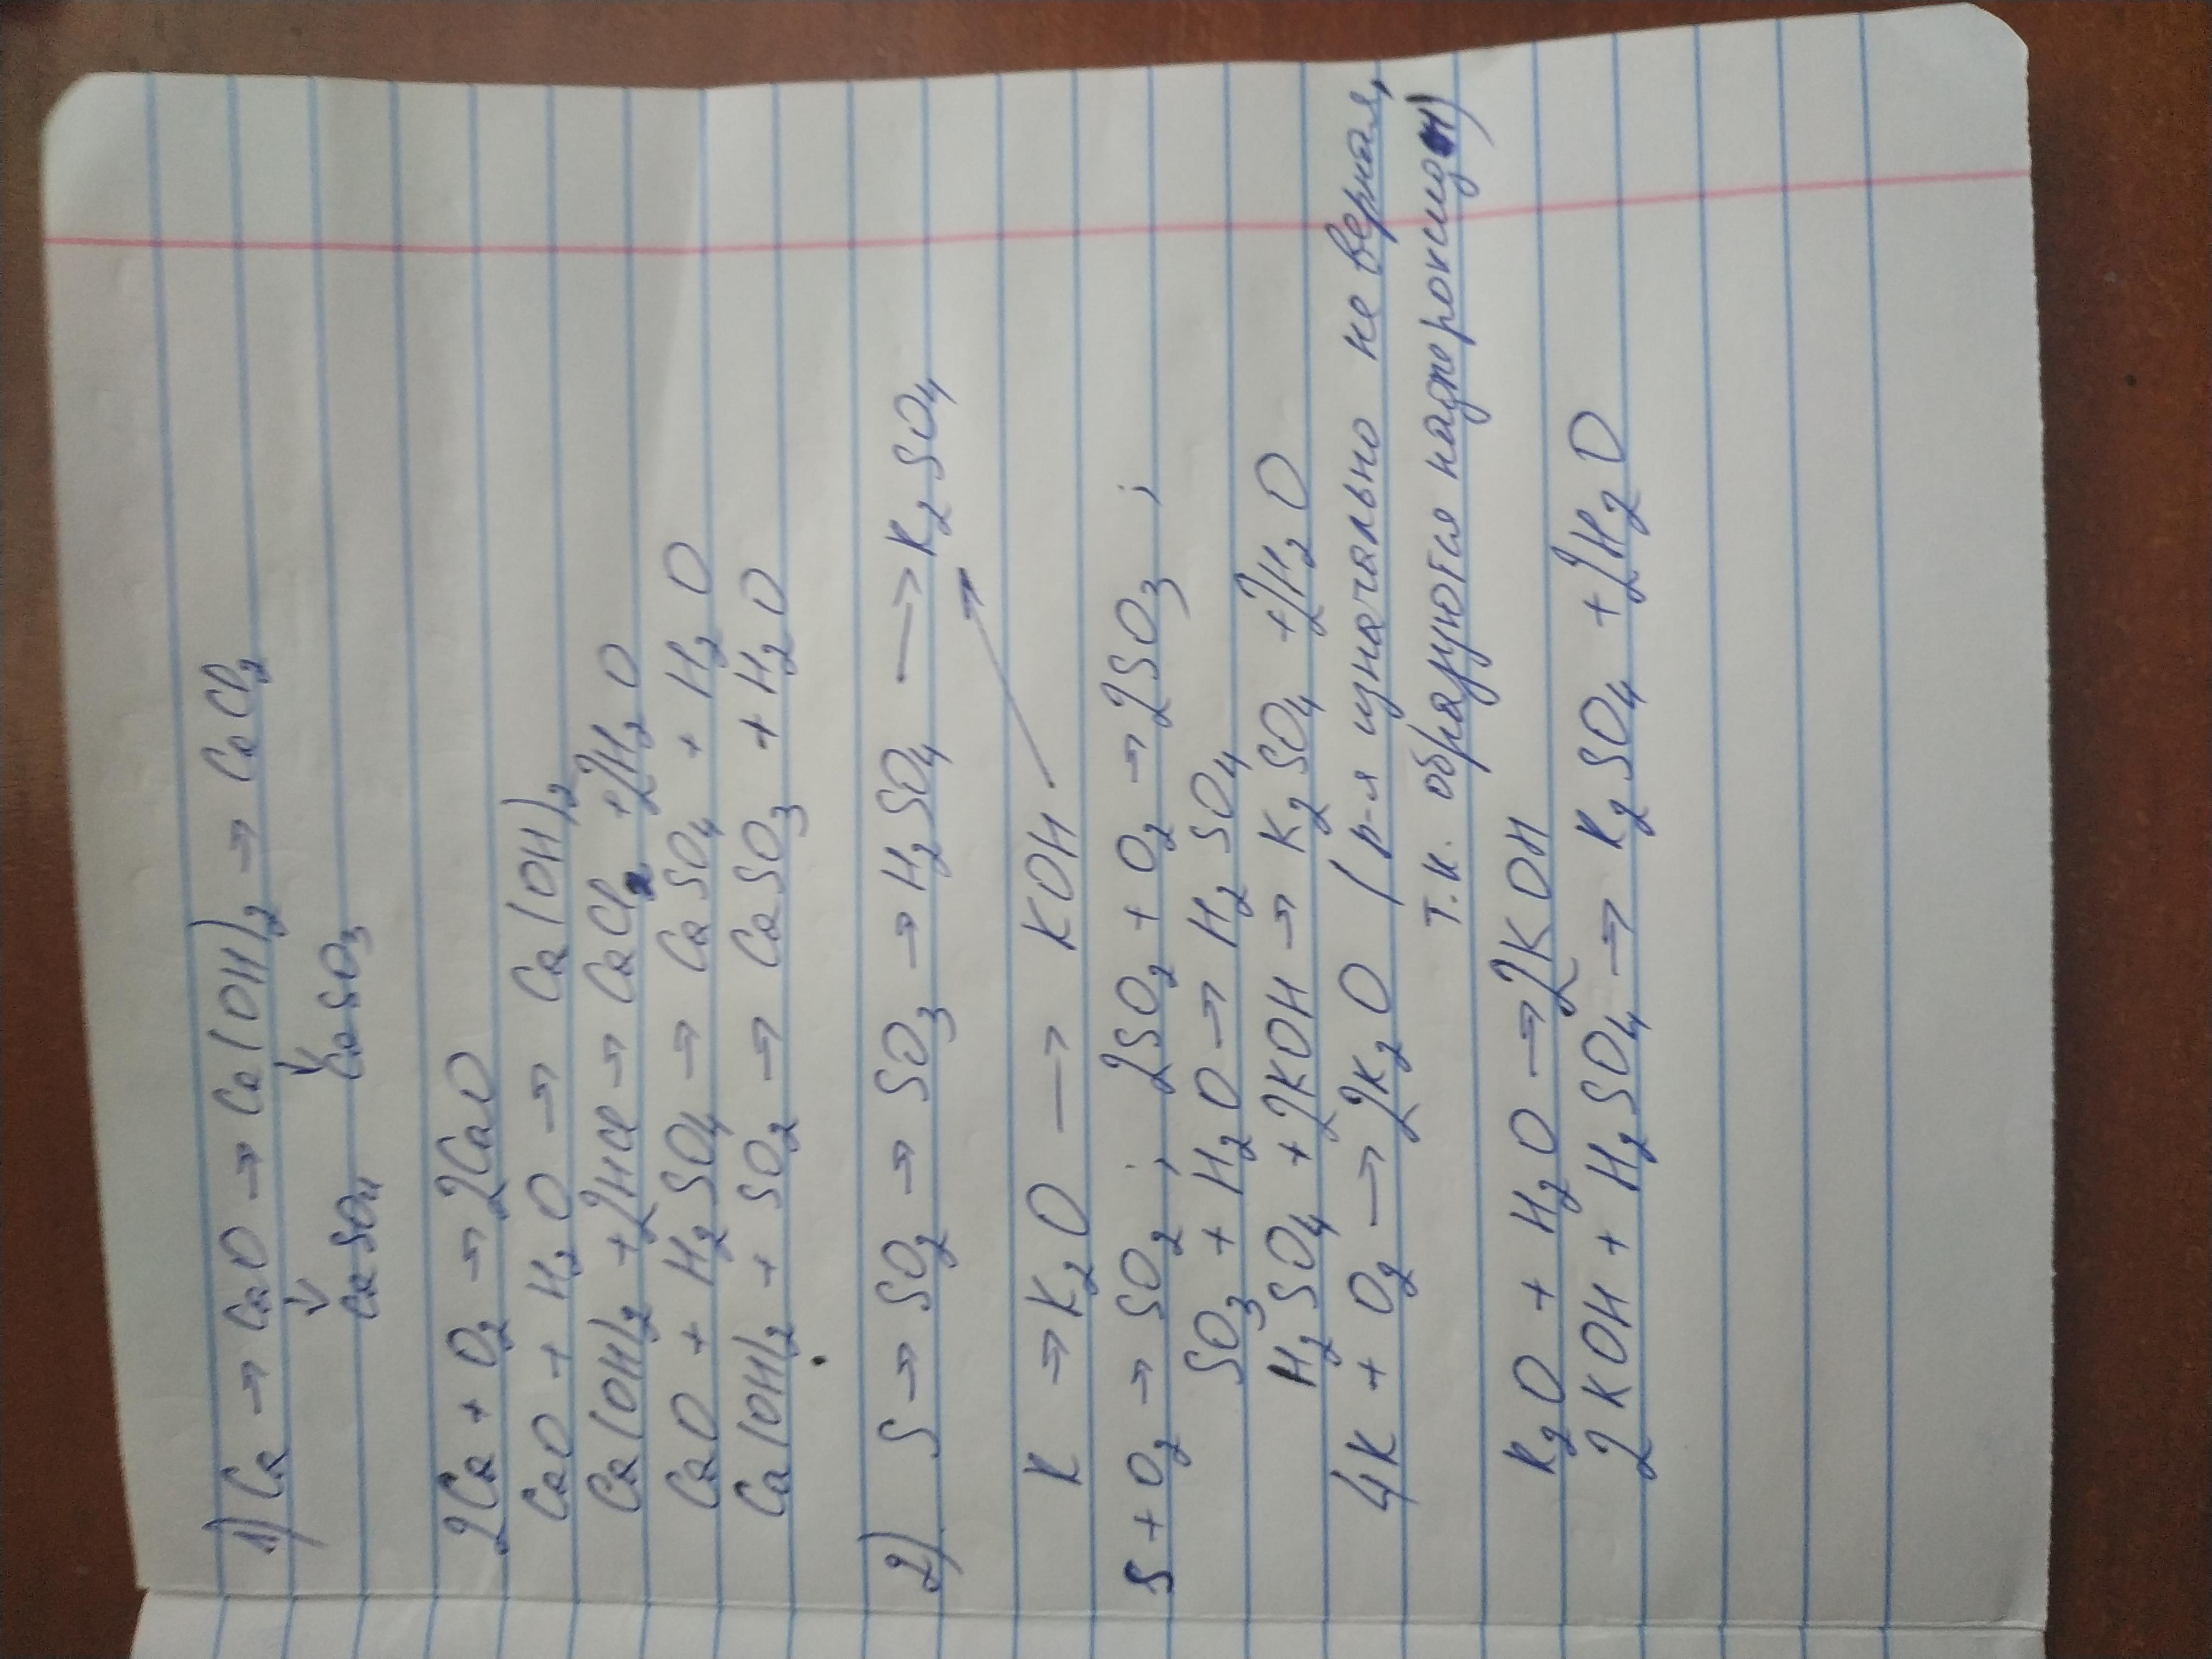 1) Ca → CaO → Ca(OH)₂ → CaCl₂
↓ ↓
CaSO₄ CaSO₃
2Ca + O₂ → 2CaO
CaO + H₂O → Ca(OH)₂
Ca(OH)₂ + 2HCl → CaCl₂ + 2H₂O
CaO + H₂SO₄ → CaSO₄ + H₂O
Ca(OH)₂ + SO₂ → CaSO₃ + H₂O
2) S → SO₂ → SO₃ → H₂SO₄ → K₂SO₄
K → K₂O → KOH ↗
S + O₂ → SO₂; 2SO₂ + O₂ → 2SO₃;
SO₃ + H₂O → H₂SO₄
H₂SO₄ + 2KOH → K₂SO₄ + 2H₂O
4K + O₂ → 2K₂O (р-я изначально не верная,
т.к. образуются надпероксиды)
K₂O + H₂O → 2KOH
2KOH + H₂SO₄ → K₂SO₄ + 2H₂O